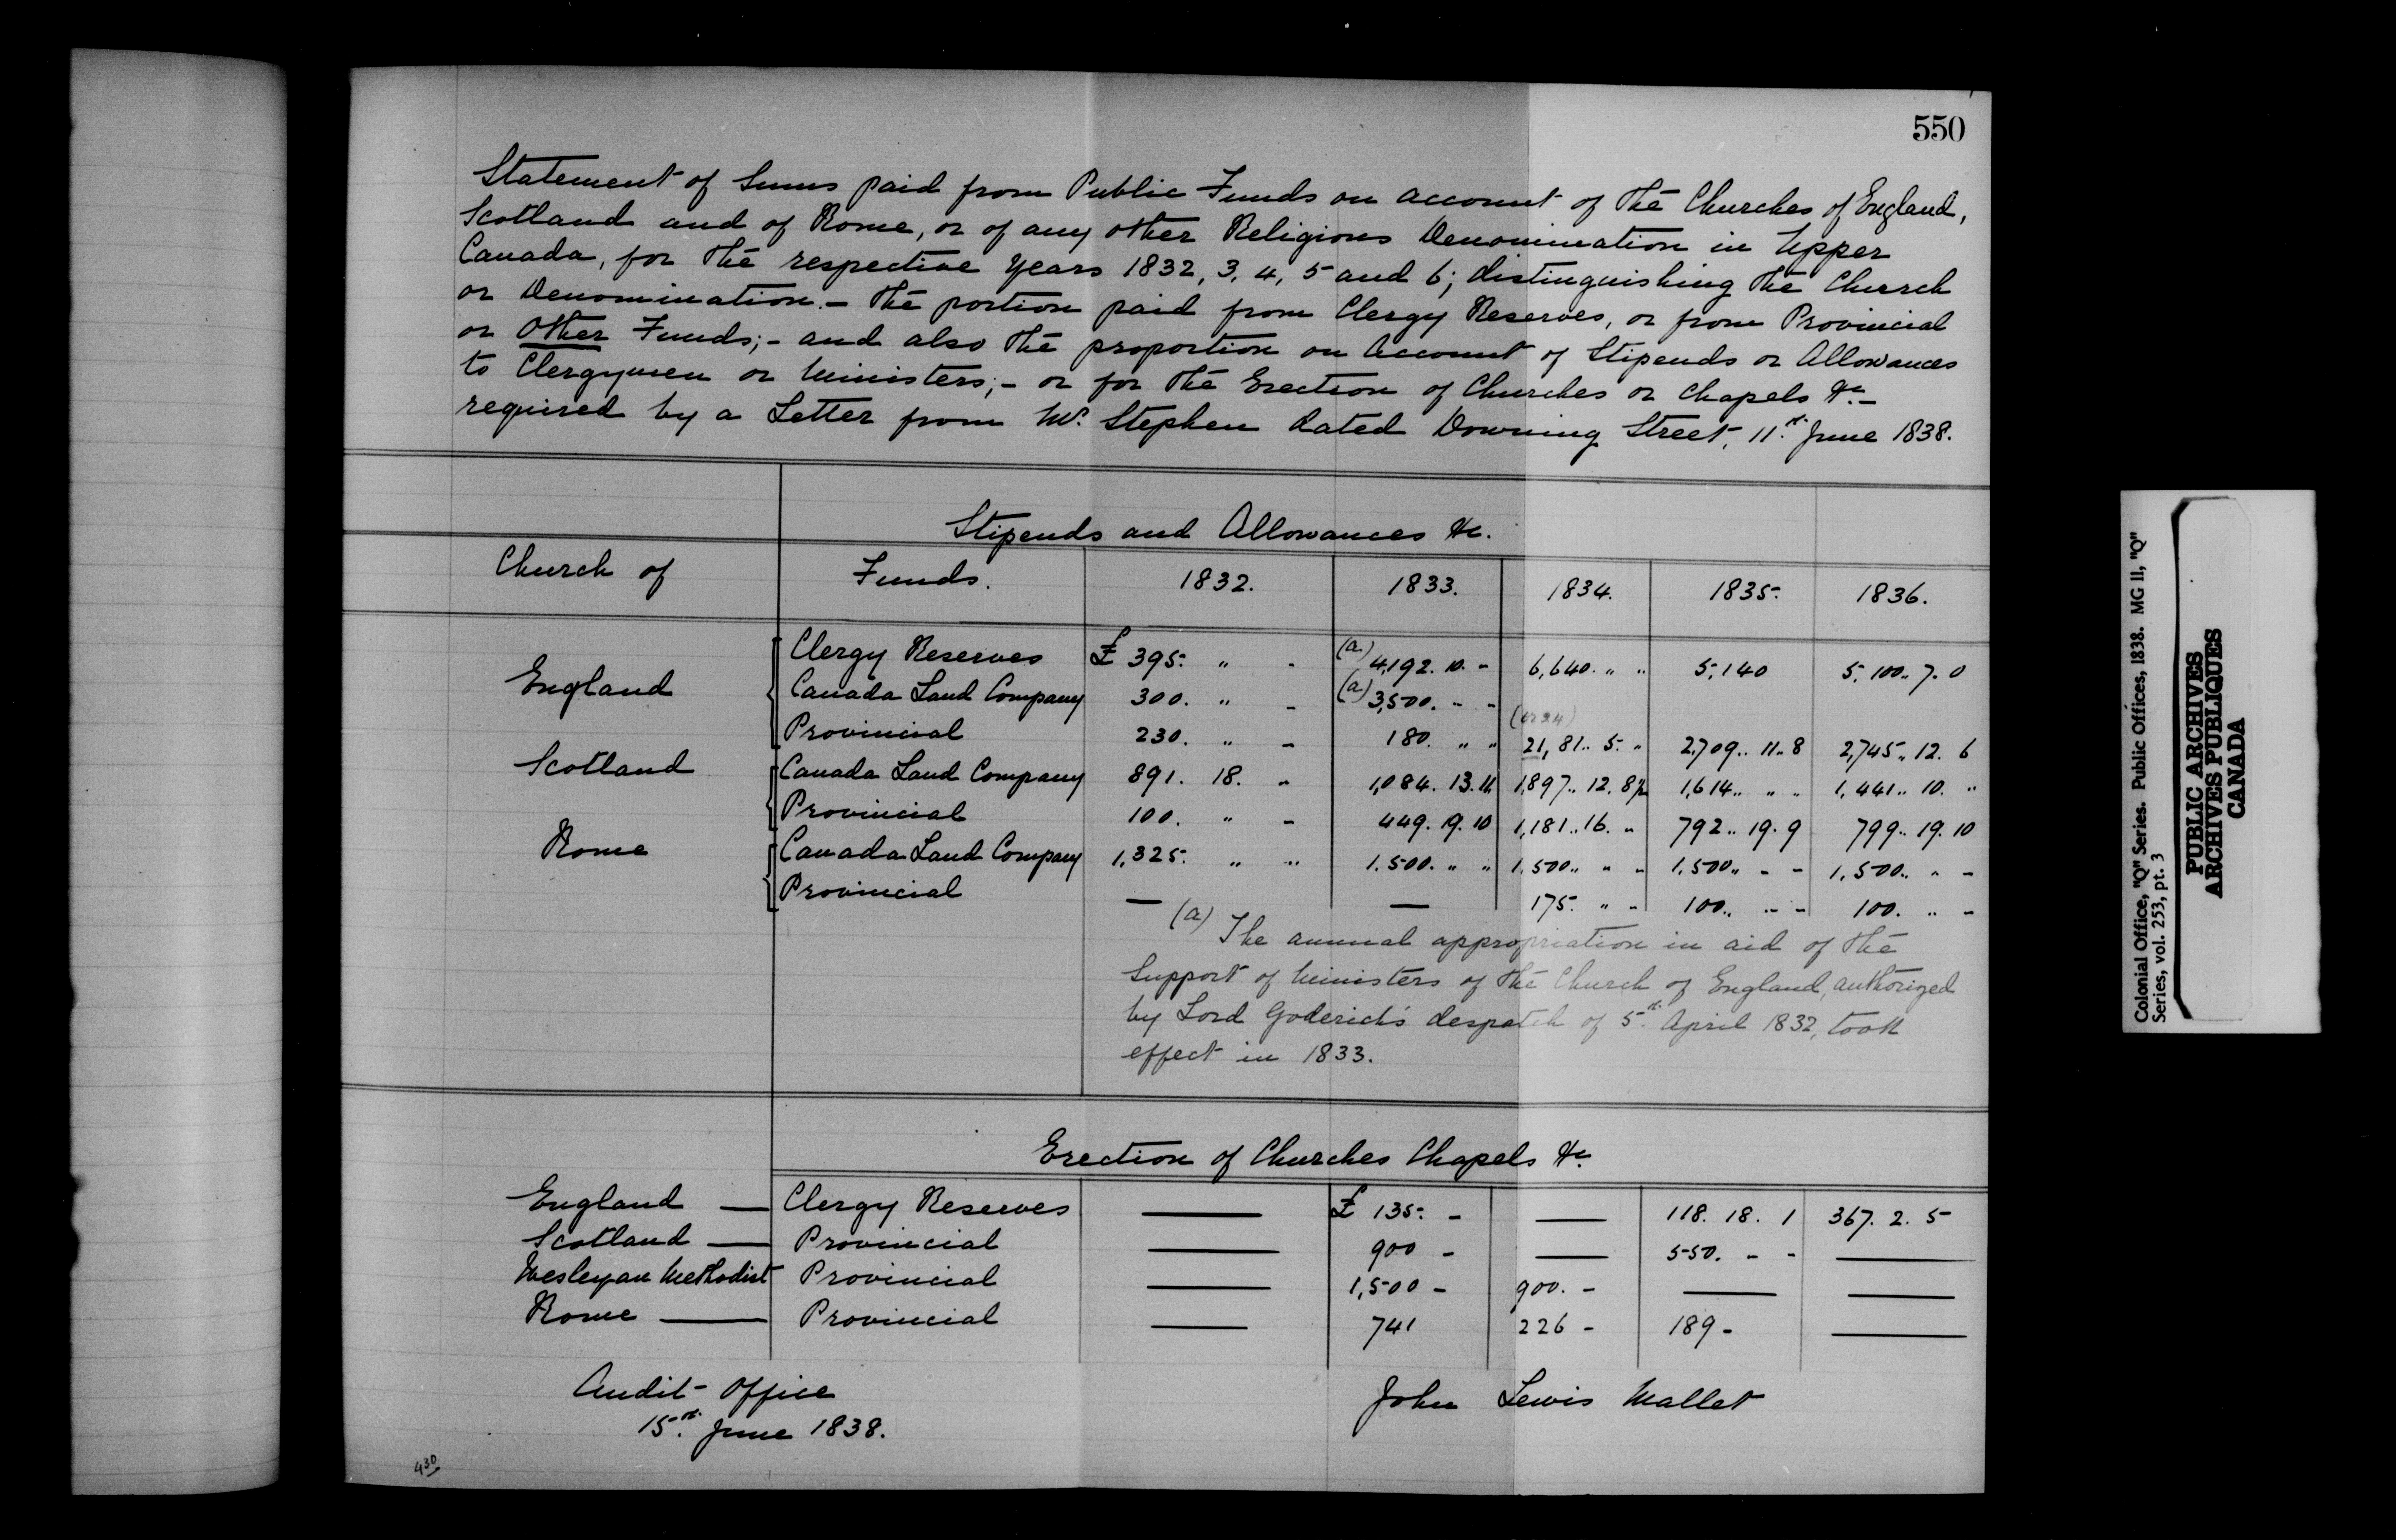 550
Statement of Sums paid from Public Funds on account of the Churches of England,
Scotland and of Rome, or of any other Religious Denomination in Upper
Canada, for the respective Years 1832, 3, 4, 5 and 6; distinguishing the Church
or Denomination. - The portion paid from Clergy Reserves, or from Provincial
or Other Funds; - and also the proportion on Account of Stipends or Allowances
to Clergymen or Ministers; - or for the Erection of Churches or Chapels &c. -
required by a Letter from Mr. Stephen dated Downing Street, 11th June 1838.
Stipends and Allowances &c.
Church of Funds. 1832. 1833. 1834. 1835. 1836.
England Clergy Reserves £ 395. " - (a) 4,192. 10. - 6,640. " " 5,140 5,100.. 7. 0
Canada Land Company 300. " - (a) 3,500. - -
Provincial 230. " - 180. " " 21,81.. 5. " 2,709.. 11.. 8 2,745.. 12. 6
Scotland Canada Land Company 891. 18. " 1,084. 13. 1,897.. 12. 8 1,614.. " " 1,441.. 10. "
Provincial 100. " - 449. 19. 10 1,181.. 16. " 792.. 19. 9 799.. 19. 10
Rome Canada Land Company 1,325. " " 1,500. " " 1,500.. " " 1,500.. - - 1,500.. " -
Provincial — — 175. " - 100.. - - 100. " -
(a) The annual appropriation in aid of the
Support of Ministers of the Church of England, authorized
by Lord Goderich's despatch of 5th April 1832, took
effect in 1833.
Erection of Churches Chapels &c
England — Clergy Reserves — £ 135. - — 118. 18. 1 367. 2. 5
Scotland — Provincial — 900 - — 550. - - —
Wesleyan Methodist Provincial — 1,500 - 900. - — —
Rome — Provincial — 741 226 - 189 - —
Audit Office
15th June 1838.
John Lewis Mallet
430
Colonial Office, "Q" Series. Public Offices, 1838. MG 11, "Q"
Series, vol. 253, pt. 3
PUBLIC ARCHIVES
ARCHIVES PUBLIQUES
CANADA